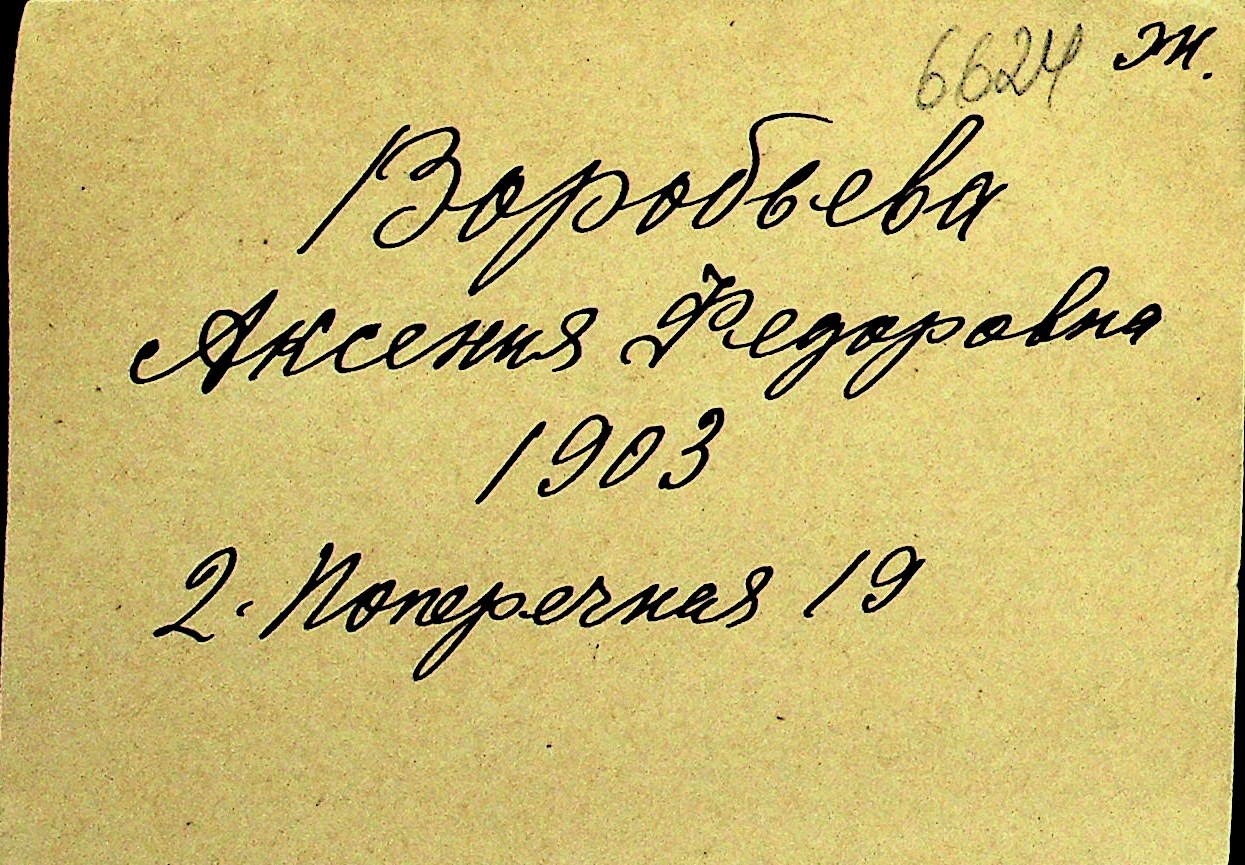 6624 ж.
Воробьева
Аксения Федоровна
1903
2. Поперечная 19